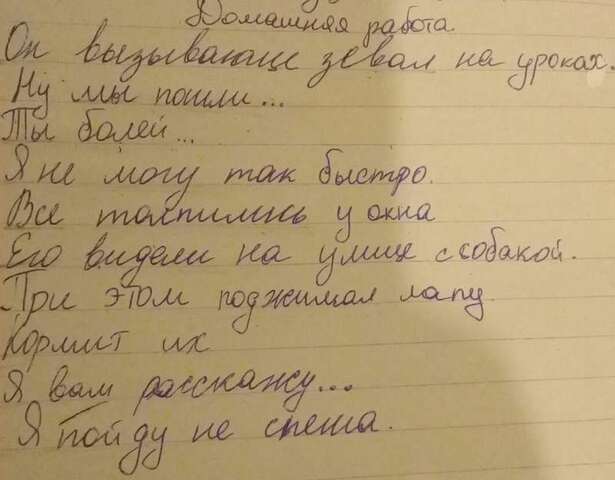 Домашняя работа
Он вызывающе зевал на уроках.
Ну мы пошли...
Ты болей...
Я не могу так быстро.
Все толпились у окна
Его видели на улице с собакой.
При этом поджимал лапу
Кормит их
Я вам расскажу...
Я пойду не спеша.